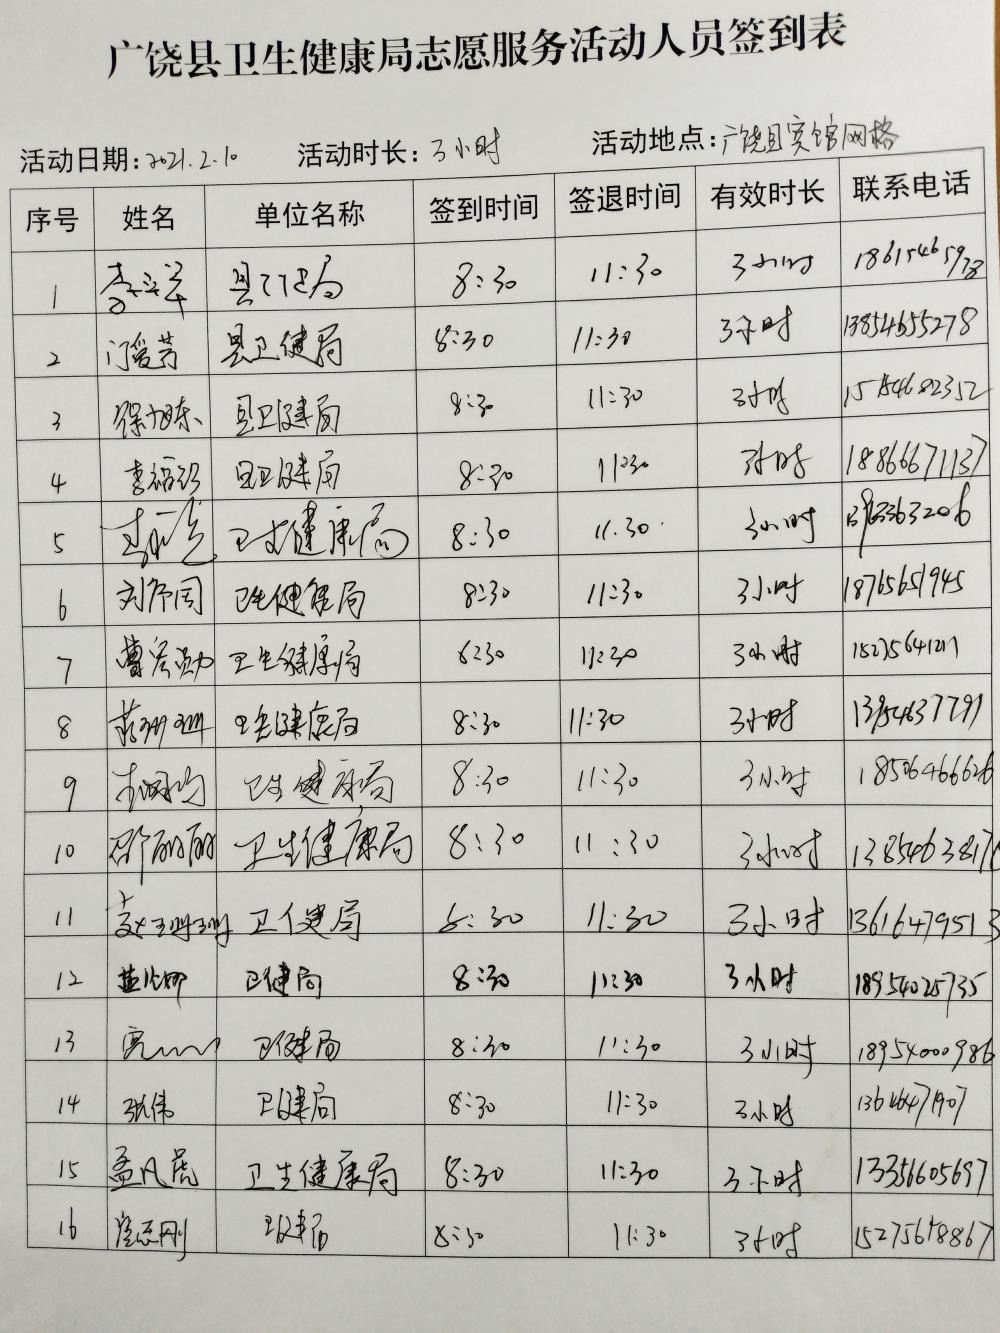 广饶县卫生健康局志愿服务活动人员签到表
活动日期：2021.2.10 活动时长：3小时 活动地点：广饶县宾馆网格
序号 姓名 单位名称 签到时间 签退时间 有效时长 联系电话
1 县卫健局 8:30 11:30 3小时
2 门爱芳 县卫健局 8:30 11:30 3小时 13854655278
3 徐旭东 县卫健局 8:30 11:30 3小时 15154682352
4 县卫健局 8:30 11:30 3小时 18866671137
5 卫生健康局 8:30 11.30 3小时
6 卫生健康局 8:30 11:30 3小时 18765651945
7 卫生健康局 8:30 11:30 3小时
8 卫生健康局 8:30 11:30 3小时
9 卫生健康局 8:30 11:30 3小时 18506466626
10 邵丽丽 卫生健康局 8:30 11:30 3小时
11 卫健局 8:30 11:30 3小时 13616479513
12 卫健局 8:30 11:30 3小时 18954025735
13 卫健局 8:30 11:30 3小时 18954000986
14 张伟 卫健局 8:30 11:30 3小时
15 孟凡虎 卫生健康局 8:30 11:30 3小时 13356605697
16 卫健局 8:30 11:30 3小时